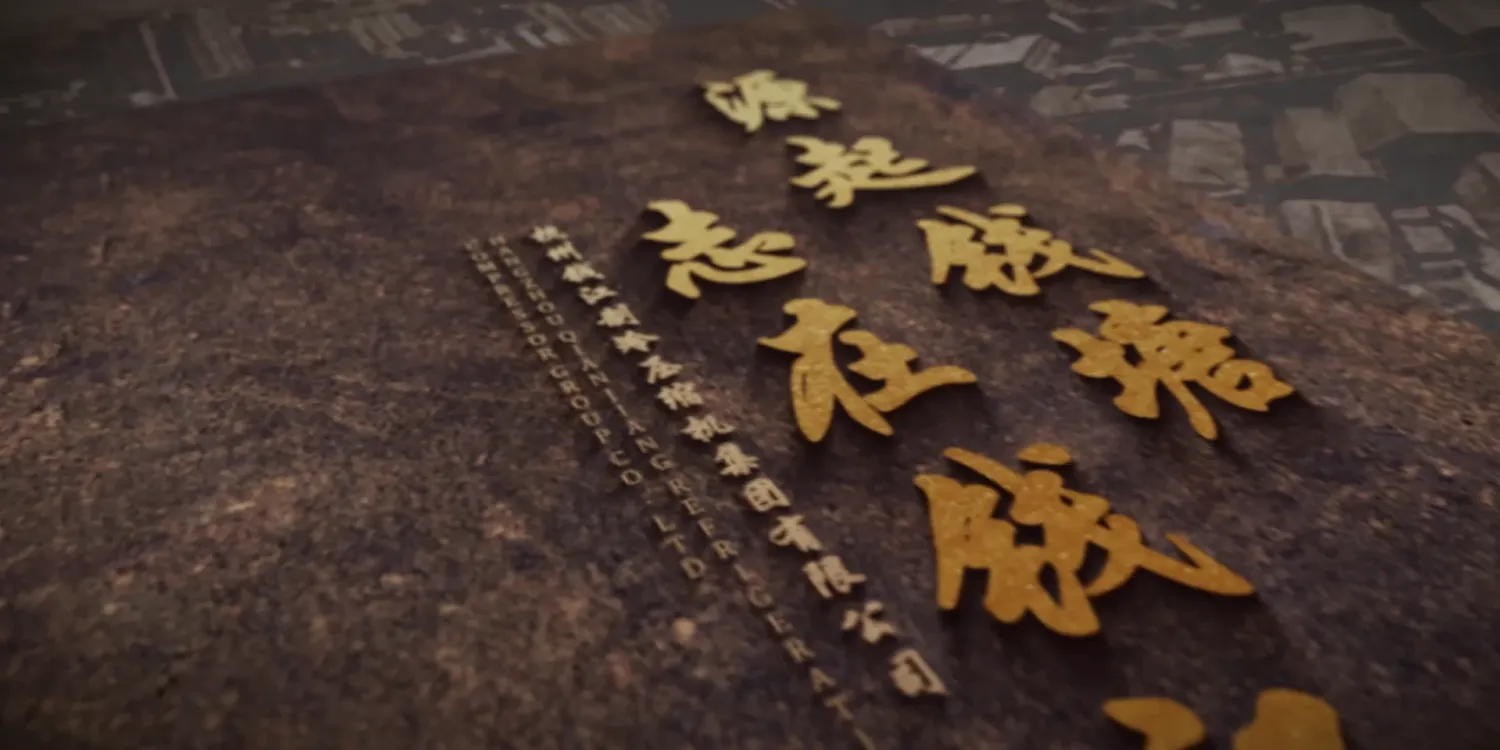 源起钱塘
志在钱
杭州钱江制冷压缩机集团有限公司
HANGZHOU QIANJIANG REFRIGERATI
COMPRESSOR GROUP CO. LTD